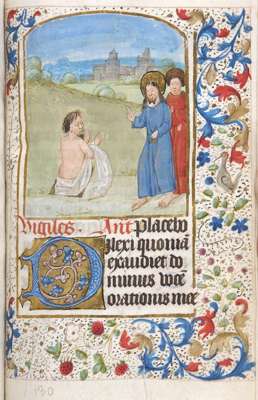 Vigiles. Ant Placebo
Dilexi quoniā
exaudiet do
minus vocē
orationis mee
130